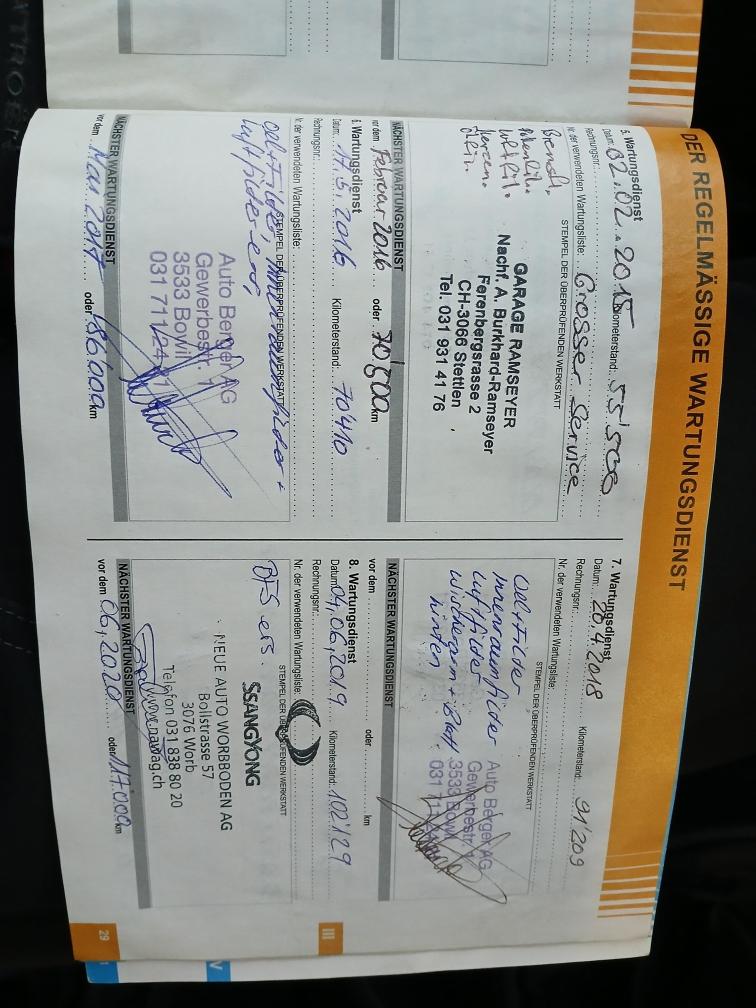 DER REGELMÄSSIGE WARTUNGSDIENST
5. Wartungsdienst
Datum: 02.02.2015 Kilometerstand: 55'508
Rechnungsnr.:
Nr. der verwendeten Wartungsliste: Grosser Service
STEMPEL DER ÜBERPRÜFENDEN WERKSTATT
GARAGE RAMSEYER
Nachf. A. Burkhard-Ramseyer
Ferenbergsrasse 2
CH-3066 Stettlen
Tel. 031 931 41 76
NÄCHSTER WARTUNGSDIENST
vor dem Februar 2016 oder 70'500 km
6. Wartungsdienst
Datum: 17.5.2016 Kilometerstand: 70'410
Rechnungsnr.:
Nr. der verwendeten Wartungsliste:
STEMPEL DER ÜBERPRÜFENDEN WERKSTATT
Oel+Filder
Luftfilder
Auto Berger AG
Gewerbestr. 1
3533 Bowil
031 711 24
NÄCHSTER WARTUNGSDIENST
vor dem Mai 2017 oder 86'000 km
7. Wartungsdienst
Datum: 20.4.2018 Kilometerstand: 91'209
Rechnungsnr.:
Nr. der verwendeten Wartungsliste:
STEMPEL DER ÜBERPRÜFENDEN WERKSTATT
Oel+Filder
Innenraumfilder
Luftfilder
Wischerarm + Blatt
hinten
Auto Berger AG
Gewerbestr. 1
3533 Bowil
031 711
NÄCHSTER WARTUNGSDIENST
vor dem oder km
8. Wartungsdienst
Datum: 04.06.2019 Kilometerstand: 102'129
Rechnungsnr.:
Nr. der verwendeten Wartungsliste:
STEMPEL DER ÜBERPRÜFENDEN WERKSTATT
BFS ers.
SSANGYONG
NEUE AUTO WORBBODEN AG
Bollstrasse 57
3076 Worb
Telefon 031 838 80 20
www.nawag.ch
NÄCHSTER WARTUNGSDIENST
vor dem 06.2020 oder 117'000 km
III
29
V